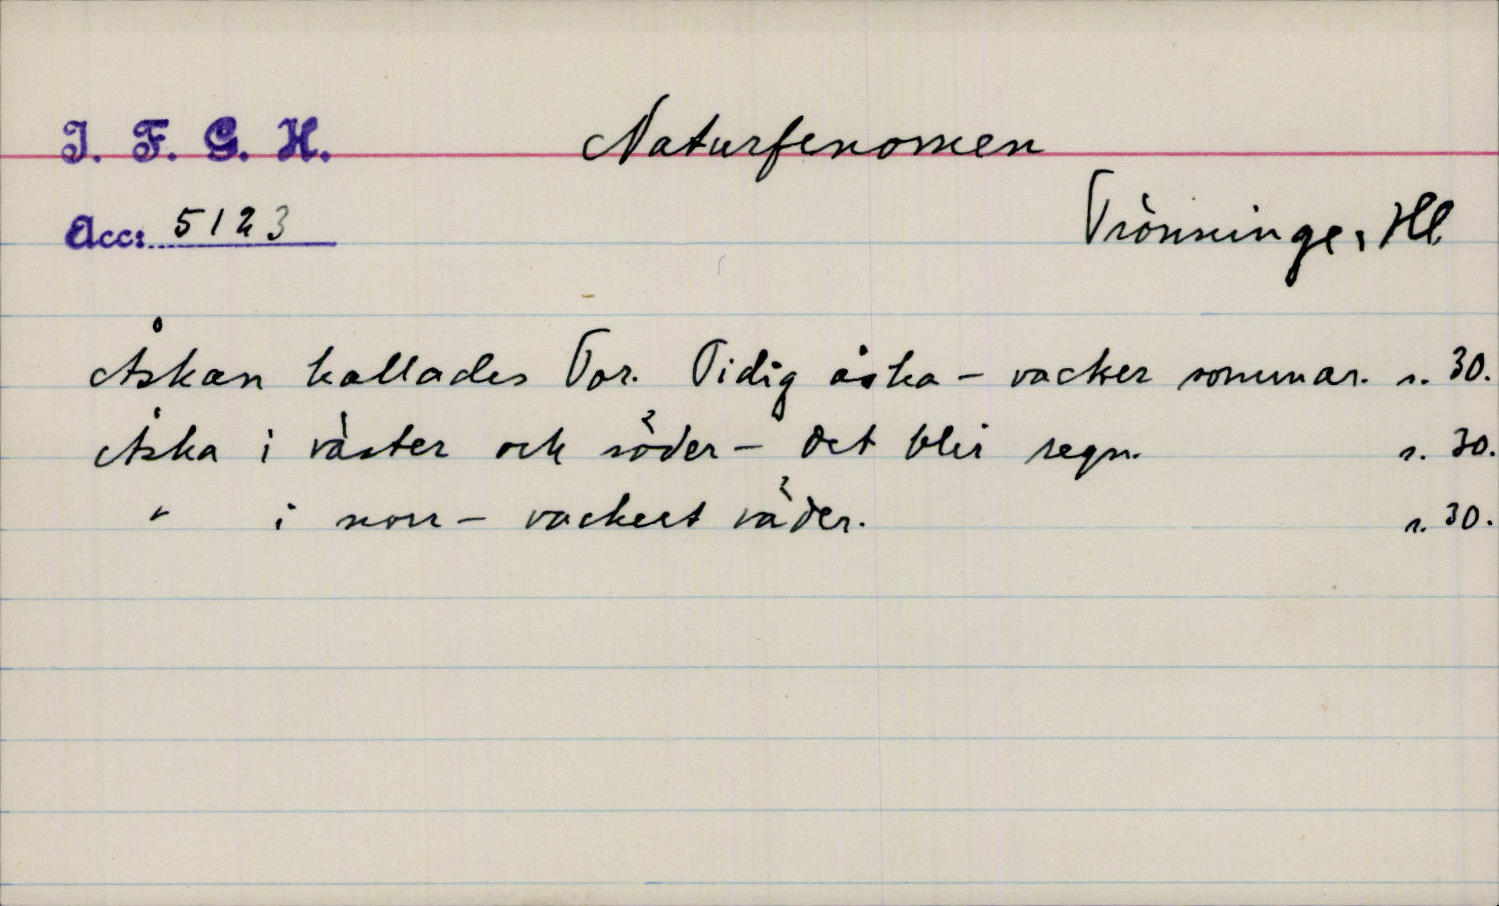 I. F. G. H.
Naturfenomen
Acc: 5123
Trönninge, Hl
Åskan kallades Tor. Tidig åska – vacker sommar. s. 30.
Åska i väster och söder – det blir regn. s. 30.
" i norr – vackert väder. s. 30.